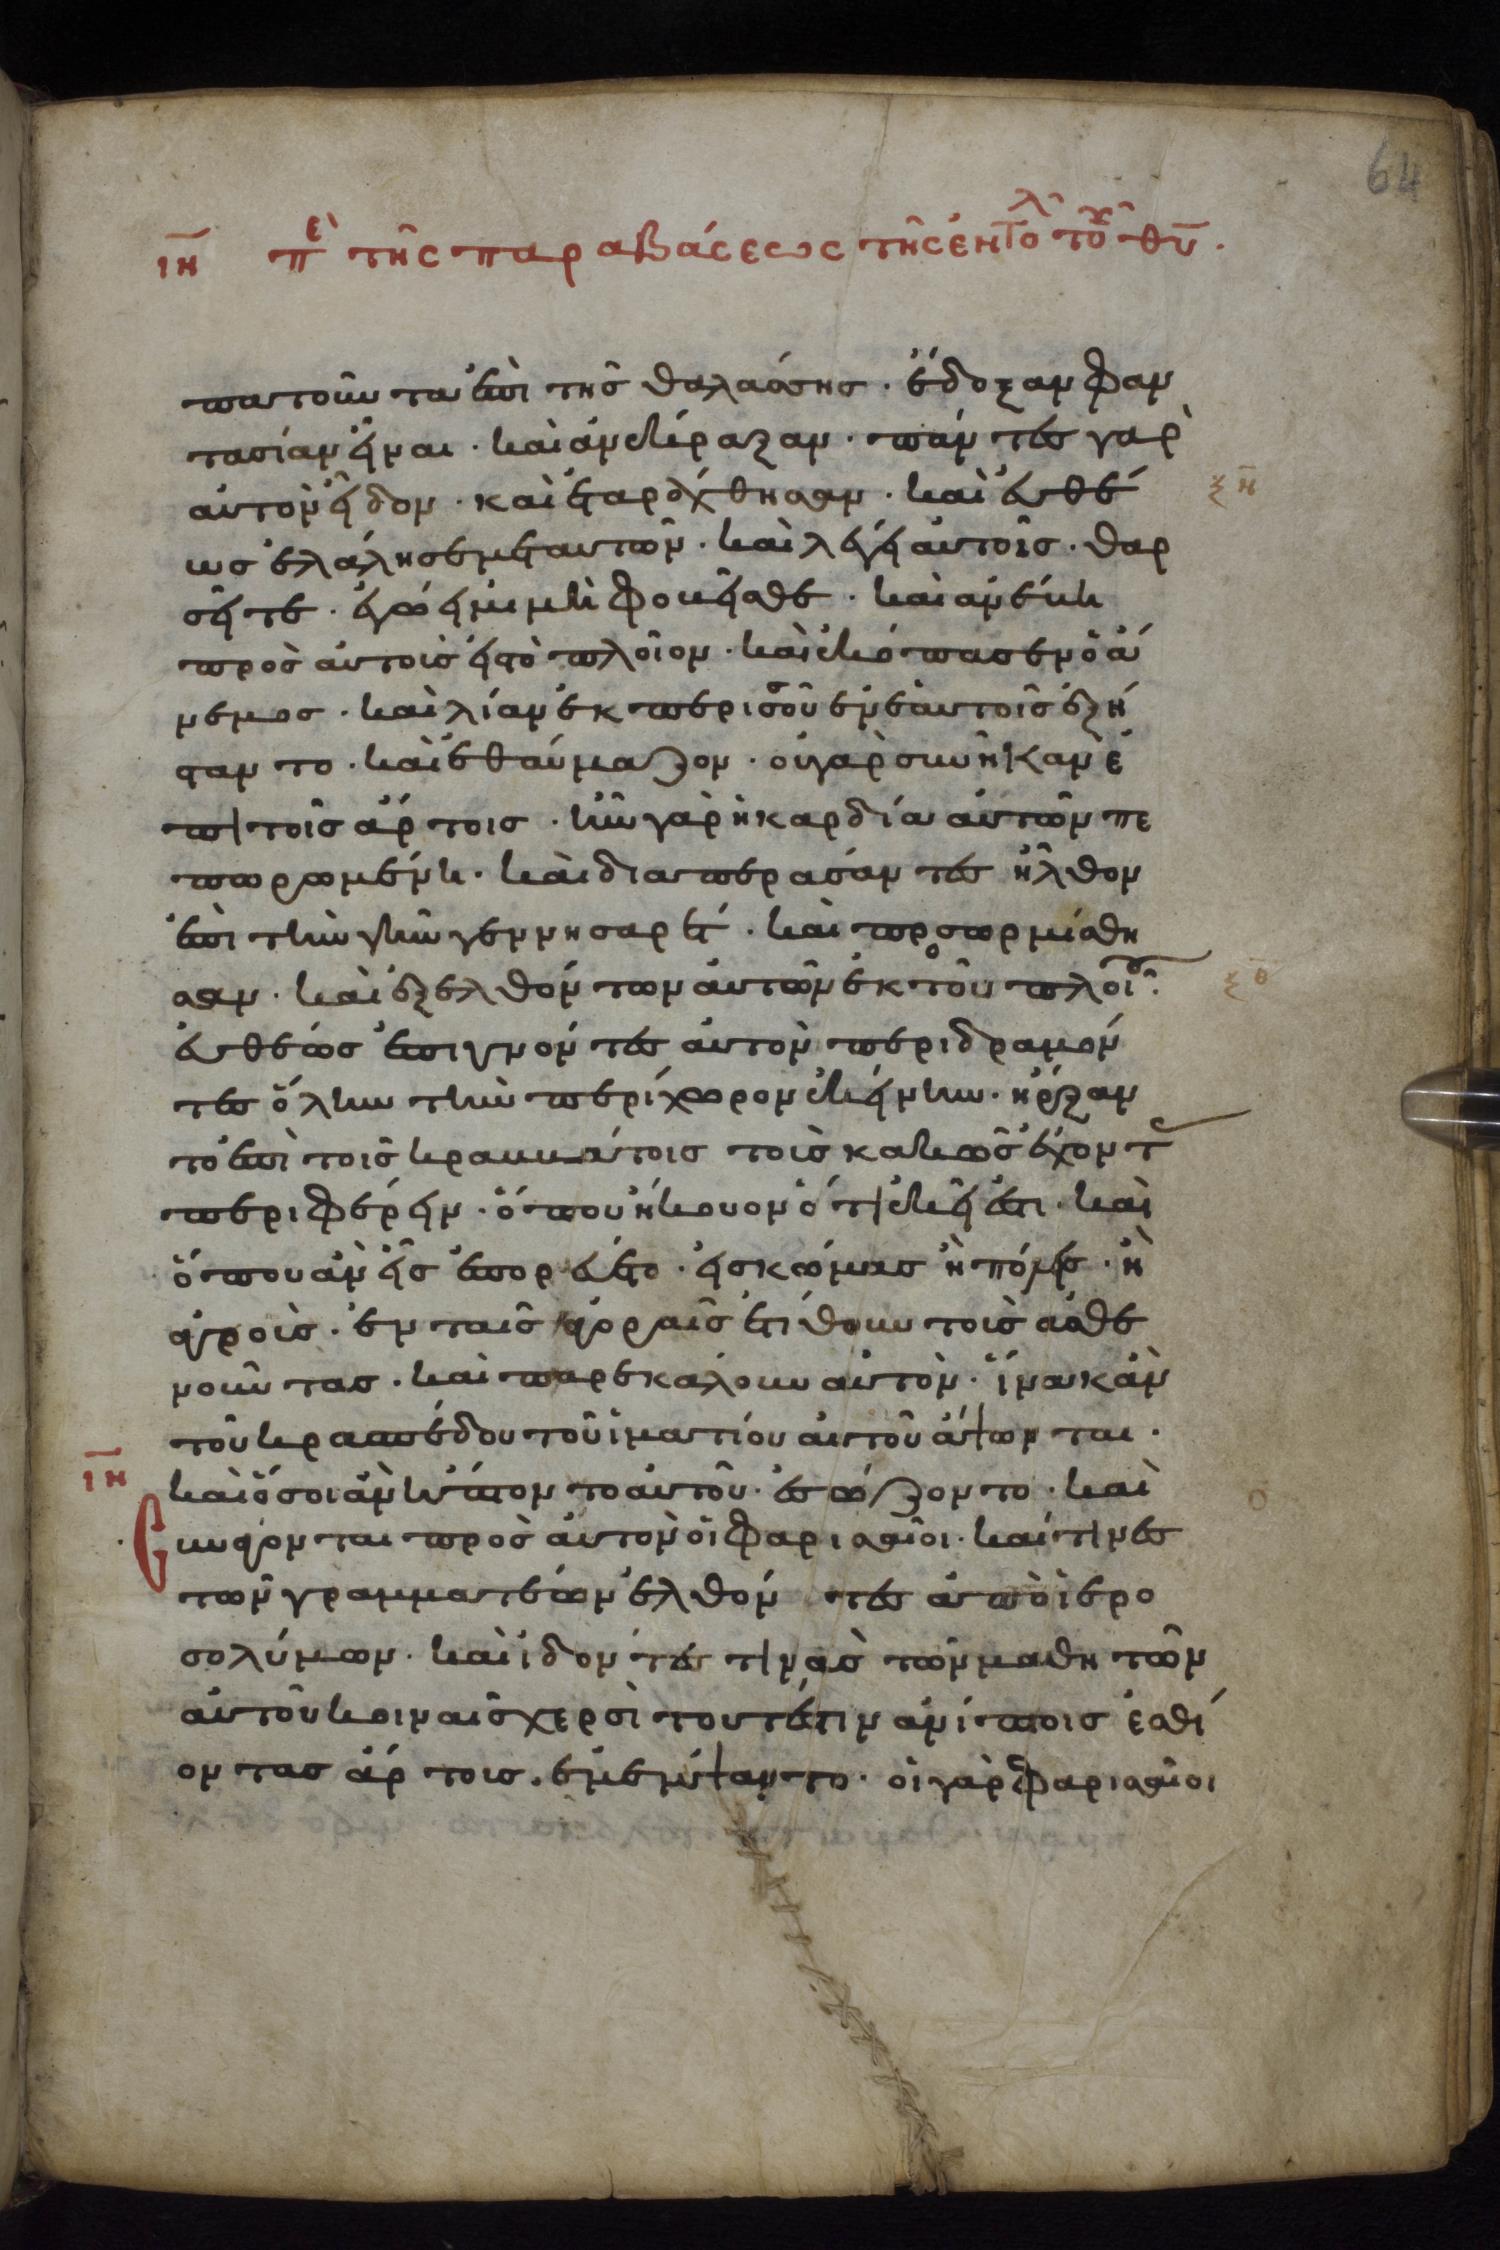 64
ιη πε τῆς παραβάσεως τῆς ἐντολ τοῦ θυ.
πατοῦντα ἐπὶ τῆς θαλάσσης · ἔδοξαν φαν
τασίαν εἶναι · καὶ ἀνέκραξαν · πάντες γὰρ
αὐτὸν εἶδον · καὶ ἐταράχθησαν · καὶ εὐθέ
ως ἐλάλησε μετ αυτῶν · καὶ λέγει αὐτοῖς · θαρ
σεῖτε · ἐγώ εἰμι μὴ φοβεῖσθε · καὶ ἀνέβη
πρὸς αὐτοὺς εἰς τὸ πλοῖον · καὶ ἐκόπασεν ὁ ἄ
νεμος · καὶ λίαν ἐκ περισσοῦ ἐν ἑαυτοῖς ἐξί
σταντο · καὶ ἐθαύμαζον · οὐ γὰρ συνῆκαν ἐ
πὶ τοῖς ἄρτοις · ἦν γὰρ ἡ καρδία αὐτῶν πε
πωρωμένη · καὶ διαπεράσαντες ἦλθον
ἐπὶ τὴν γῆν γεννησαρέτ · καὶ προσωρμίσθη
σαν · καὶ ἐξελθόντων αὐτῶν ἐκ τοῦ πλοίου ·
εὐθέως ἐπιγνόντες αὐτὸν περιδραμόν
τες ὅλην τὴν περίχωρον ἐκείνην · ἤρξαν
το ἐπὶ τοῖς κραββάτοις τοὺς κακῶς ἔχοντ
περιφέρειν · ὅπου ἤκουον ὅτι ἐκεῖ ἐστι · καὶ
ὅπου ἂν εἰσεπορεύετο · εἰς κώμας ἢ πόλεις · ἢ
ἀγροὺς · ἐν ταῖς ἀγοραῖς ἐτίθουν τοὺς ἀσθε
νοῦντας · καὶ παρεκάλουν αὐτὸν · ἵνα κἂν
τοῦ κρασπέδου τοῦ ἱματίου αὐτοῦ ἅψωνται ·
ξη
ξθ
ιη
καὶ ὅσοι ἂν ἥπτοντο αὐτοῦ · ἐσώζοντο · καὶ
ο
Συνάγονται πρὸς αὐτὸν οἱ φαρισαῖοι · καί τινες
τῶν γραμματέων ἐλθόντες ἀπὸ ἱερο
σολύμων · καὶ ἰδόντες τινὰς τῶν μαθητῶν
αὐτοῦ κοιναῖς χερσὶ τουτέστιν ἀνίπτοις ἐσθί
οντας ἄρτους · ἐμέμψαντο · οἱ γὰρ φαρισαῖοι